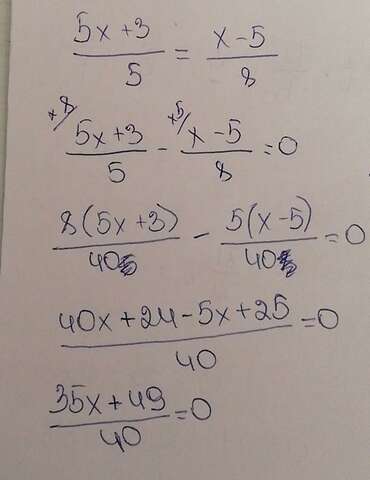 (5x+3)/5 = (x-5)/8
×8/ (5x+3)/5 - ×5/ (x-5)/8 = 0
8(5x+3)/40 - 5(x-5)/40 = 0
(40x+24-5x+25)/40 = 0
(35x+49)/40 = 0